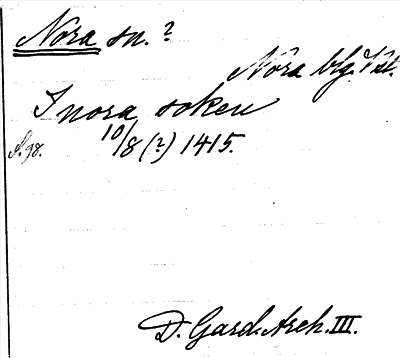 Nora sn.?
Nora blg. Vstl.
I nora soken
S. 98. 10/8 (?) 1415.
D. Gard. Arch. III.